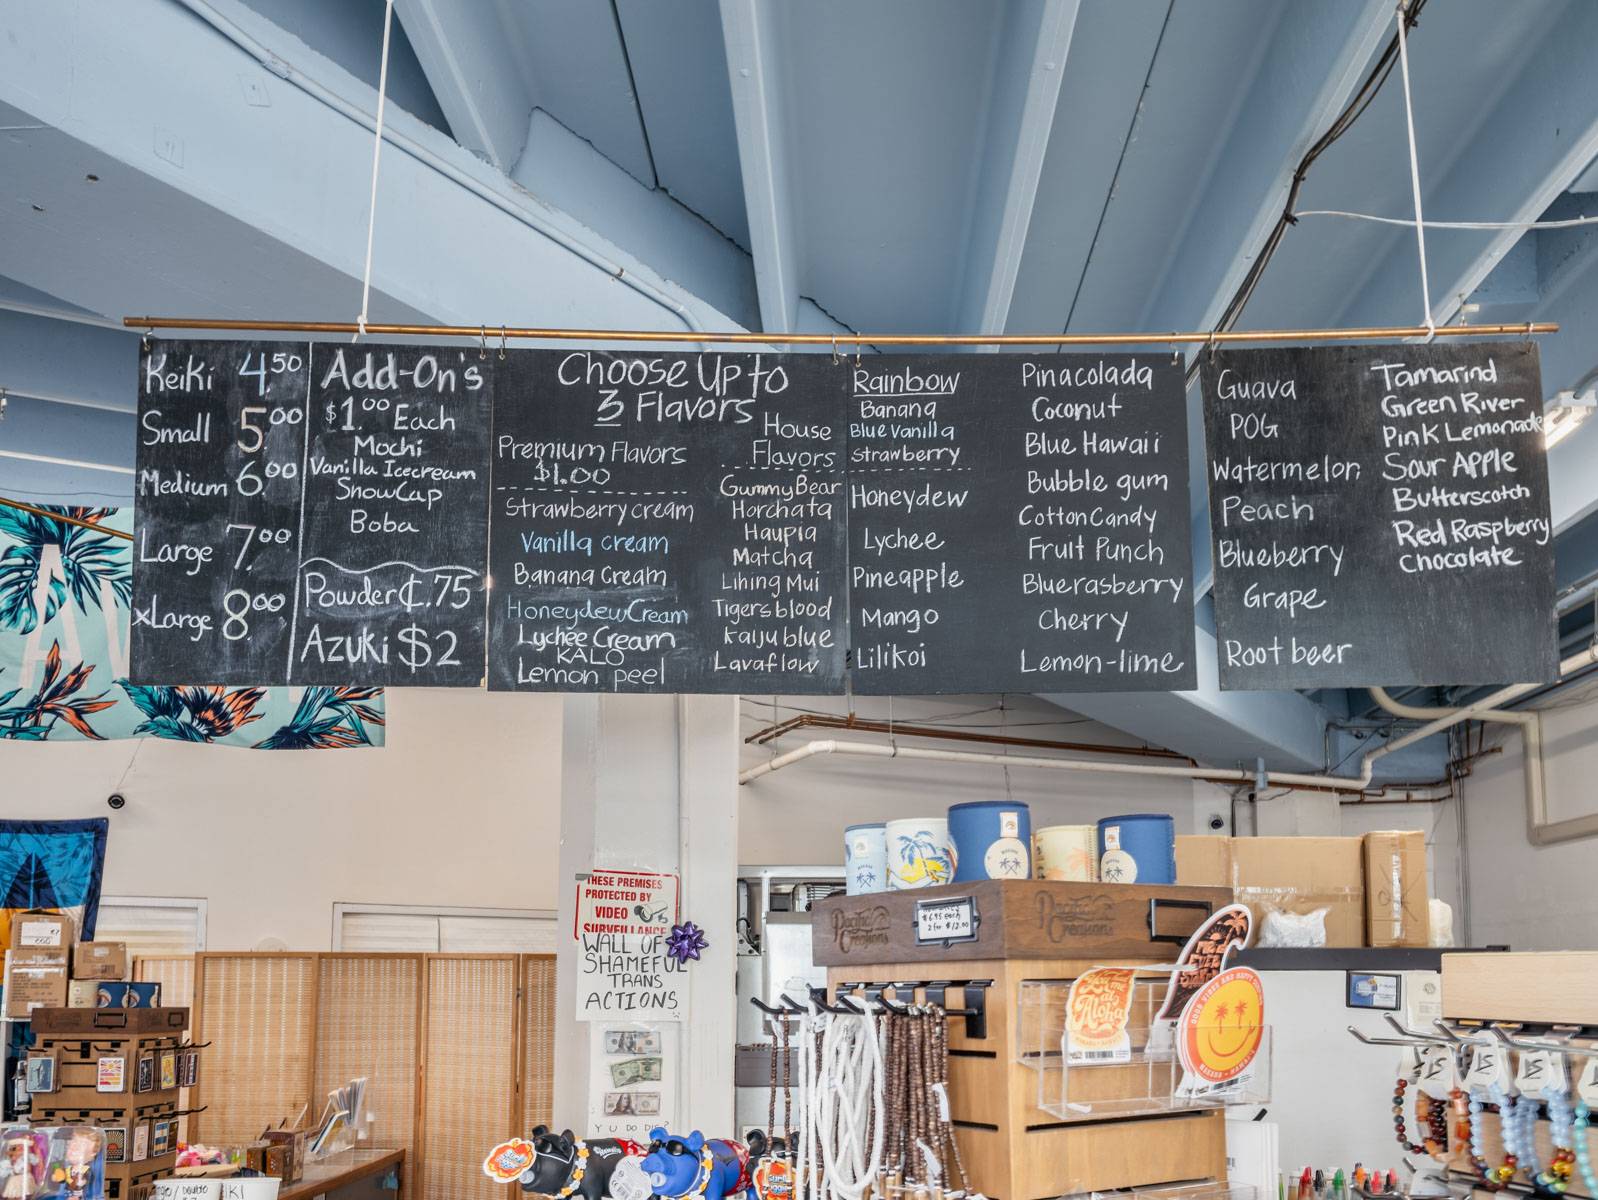 Keiki 4.50
Small 5.00
Medium 6.00
Large 7.00
xLarge 8.00
Add-On's
$1.00 Each
Mochi
Vanilla Icecream
SnowCap
Boba
Powder ¢.75
Azuki $2
Choose Up to
3 Flavors
Premium Flavors
$1.00
Strawberry cream
Vanilla cream
Banana Cream
Honeydew Cream
Lychee Cream
KALO
Lemon peel
House
Flavors
Gummy Bear
Horchata
Haupia
Matcha
Lihing Mui
Tigers blood
Kaiju blue
Lavaflow
Rainbow
Banana
Blue Vanilla
Strawberry
Honeydew
Lychee
Pineapple
Mango
Lilikoi
Pinacolada
Coconut
Blue Hawaii
Bubble gum
Cotton Candy
Fruit Punch
Bluerasberry
Cherry
Lemon-lime
Guava
POG
Watermelon
Peach
Blueberry
Grape
Root beer
Tamarind
Green River
Pink Lemonade
Sour Apple
Butterscotch
Red Raspberry
Chocolate
THESE PREMISES
PROTECTED BY
VIDEO
SURVEILLANCE
WALL OF
SHAMEFUL
TRANS
ACTIONS
Y U DO DIS?
Pacific
Creations
$6.95 each
2 for $12.00
Pacific
Creations
Aloha